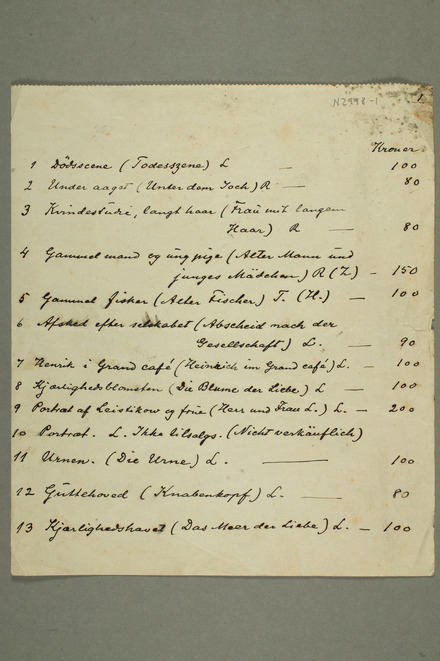 N2998-1
1
Kroner
1 Dödsscene (Todesszene) L — 100
2 Under aaget (Unter dem Joch) R — 80
3 Kvindestudie, langt haar (Frau mit langem
Haar) R — 80
4 Gammel mand og ung pige (Alter Mann und
junges Mädchen) R (Z) — 150
5 Gammel fisker (Alter Fischer) T. (H.) — 100
6 Afsked efter selskabet (Abscheid nach der
Gesellschaft) L. — 90
7 Henrik i Grand café (Heinrich im Grand café) L. — 100
8 Kjærlighedsblomsten (Die Blume der Liebe) L — 100
9 Portræt af Leistikow og frue (Herr und Frau L.) L. — 200
10 Portræt. L. Ikke tilsalgs. (Nicht verkäuflich)
11 Urnen. (Die Urne) L. — 100
12 Guttehoved (Knabenkopf) L. — 80
13 Kjærlighedshavet (Das Meer der Liebe) L. — 100